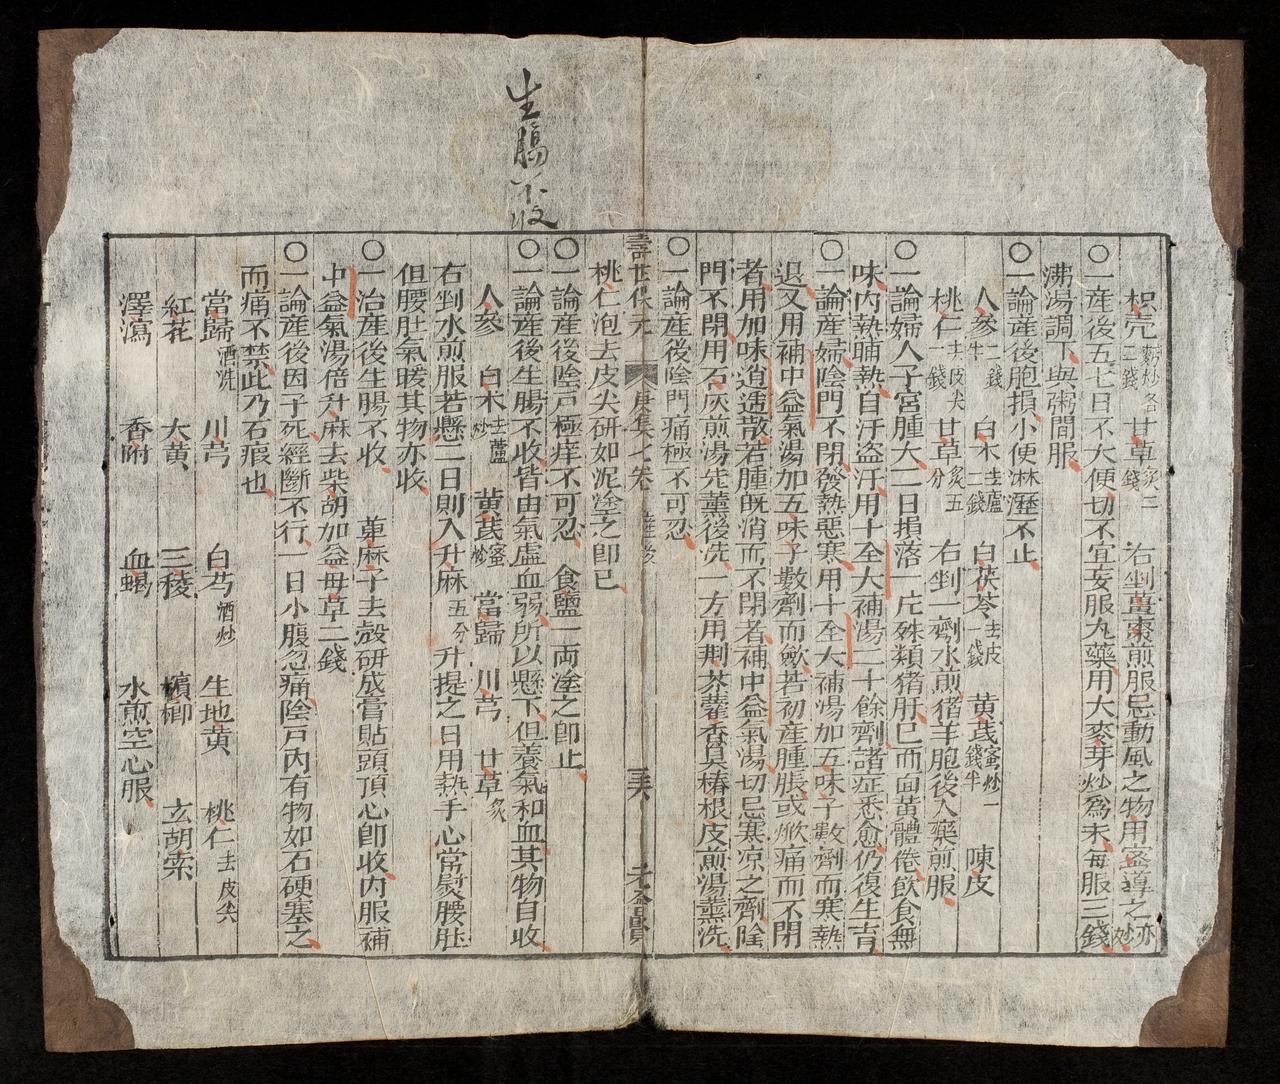 生腸不收
枳壳麩炒各二錢 甘草炙二錢 右剉薑棗煎服忌動風之物用蜜導之亦妙
○一産後五七日不大便切不宜妄服丸藥用大麥芽炒爲末每服三錢
沸湯調下與粥間服
○一論産後胞損小便淋瀝不止
人參二錢半 白术去蘆二錢 白茯苓去皮一錢 黄芪蜜炒一錢半 陳皮
桃仁去皮尖一錢 甘草炙五分 右剉一劑水煎猪羊胞後入藥煎服
○一論婦人子宮腫大二日損落一片殊類猪肝已而面黄體倦飲食無
味内熱晡熱自汗盜汗用十全大補湯二十餘劑諸症悉愈仍復生育
○一論産婦陰門不閉發熱惡寒用十全大補湯加五味子數劑而寒熱
退又用補中益氣湯加五味子數劑而歛若初産腫脹或焮痛而不閉
者用加味逍遥散若腫旣消而不閉者補中益氣湯切忌寒凉之劑陰
門不閉用石灰煎湯先薰後洗一方用荆芥藿香臭椿根皮煎湯薰洗
○一論産後陰門痛極不可忍
壽世保元 庚集七卷 産後
桃仁泡去皮尖研如泥塗之即已
○一論産後陰戶極痒不可忍 食鹽一両塗之即止
○一論産後生腸不收皆由氣虚血弱所以懸下但養氣和血其物自收
人參 白术去蘆炒 黄芪蜜炒 當歸 川芎 甘草炙
右剉水煎服若懸二日則入升麻五分升提之日用熱手心常熨腰肚
但腰肚氣暖其物亦收
○一治産後生腸不收 萆麻子去殻研成膏貼頭頂心即收内服補
中益氣湯倍升麻去柴胡加益母草二錢
○一論産後因子死經斷不行一日小腹忽痛陰戶内有物如石硬塞之
而痛不禁此乃石瘕也
當歸酒洗 川芎 白芍酒炒 生地黄 桃仁去皮尖
紅花 大黄 三稜 檳榔 玄胡索
澤瀉 香附 血蝎 水煎空心服